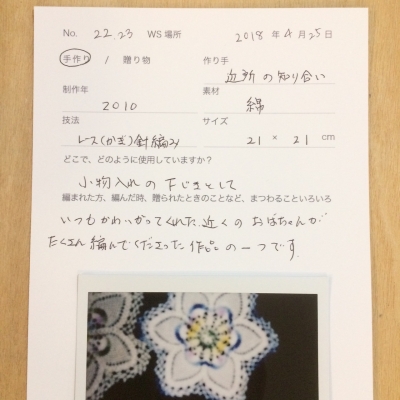 No. 22.23 WS場所 2018年4月25日
手作り / 贈り物 作り手
近所の知り合い
制作年 素材
2010 綿
技法 サイズ
レース(かぎ)針編み 21 × 21 cm
どこで、どのように使用していますか?
小物入れの下じきとして
編まれた方、編んだ時、贈られたときのことなど、まつわることいろいろ
いつもかわいがってくれた、近くのおばちゃんが
たくさん編んでくださった作品の一つです。